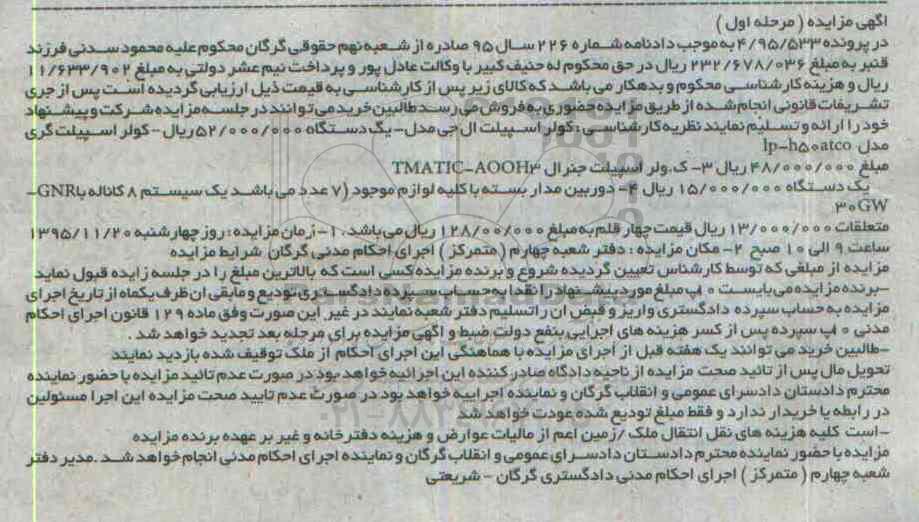 آگهی مزایده ( مرحله اول )
در پرونده ۴/۹۵/۵۳۳ به موجب دادنامه شماره ۲۲۶ سال ۹۵ صادره از شعبه نهم حقوقی گرگان محکوم علیه محمود سدنی فرزند
قنبر به مبلغ ۲۳۲/۶۷۸/۰۳۶ ریال در حق محکوم له حنیف کبیر با وکالت عادل پور و پرداخت نیم عشر دولتی به مبلغ ۱۱/۶۳۳/۹۰۲
ریال و هزینه کارشناسی محکوم و بدهکار می باشد که کالای زیر پس از کارشناسی به قیمت ذیل ارزیابی گردیده است پس از جری
تشریفات قانونی انجام شده از طریق مزایده حضوری به فروش می رسد طالبین خرید می توانند در جلسه مزایده شرکت و پیشنهاد
خود را ارائه و تسلیم نمایند نظریه کارشناسی : کولر اسپیلت ال جی مدل- یک دستگاه ۵۲/۰۰۰/۰۰۰ ریال - کولر اسپیلت گری
مدل lp-h۵۰atco
مبلغ ۴۸/۰۰۰/۰۰۰ ریال ۳- ک.ولر اسپیلت جنرال TMATIC-AOOH۳
یک دستگاه ۱۵/۰۰۰/۰۰۰ ریال ۴- دوربین مدار بسته با کلیه لوازم موجود (۷ عدد می باشد یک سیستم ۸ کاناله با GNR-
۳۰GW
متعلقات ۱۳/۰۰۰/۰۰۰ ریال قیمت چهار قلم به مبلغ ۱۲۸/۰۰/۰۰۰ ریال می باشد . ۱- زمان مزایده : روز چهارشنبه ۱۳۹۵/۱۱/۲۰
ساعت ۹ الی ۱۰ صبح ۲- مکان مزایده : دفتر شعبه چهارم ( متمرکز ) اجرای احکام مدنی گرگان شرایط مزایده
مزایده از مبلغی که توسط کارشناس تعیین گردیده شروع و برنده مزایده کسی است که بالاترین مبلغ را در جلسه زایده قبول نماید
-برنده مزایده می بایست ۱۰٪ مبلغ مورد پیشنهاد را نقدا به حساب سپرده دادگستری تودیع و مابقی ان ظرف یکماه از تاریخ اجرای
مزایده به حساب سپرده دادگستری واریز و قبض ان را تسلیم دفتر شعبه نمایند در غیر این صورت وفق ماده ۱۲۹ قانون اجرای احکام
مدنی ۱۰٪ سپرده پس از کسر هزینه های اجرایی بنفع دولت ضبط و آگهی مزایده برای مرحله بعد تجدید خواهد شد .
-طالبین خرید می توانند یک هفته قبل از اجرای مزایده با هماهنگی این اجرای احکام از ملک توقیف شده بازدید نمایند
تحویل مال پس از تائید صحت مزایده از ناحیه دادگاه صادر کننده این اجرائیه خواهد بود در صورت عدم تائید مزایده با حضور نماینده
محترم دادستان دادسرای عمومی و انقلاب گرگان و نماینده اجراییه خواهد بود در صورت عدم تایید صحت مزایده این اجرا مسئولین
در رابطه با خریدار ندارد و فقط مبلغ تودیع شده عودت خواهد شد
-است کلیه هزینه های نقل انتقال ملک /زمین اعم از مالیات عوارض و هزینه دفتر خانه و غیر بر عهده برنده مزایده
مزایده با حضور نماینده محترم دادستان دادسرای عمومی و انقلاب گرگان و نماینده اجرای احکام مدنی انجام خواهد شد .مدیر دفتر
شعبه چهارم ( متمرکز ) اجرای احکام مدنی دادگستری گرگان - شریعتی